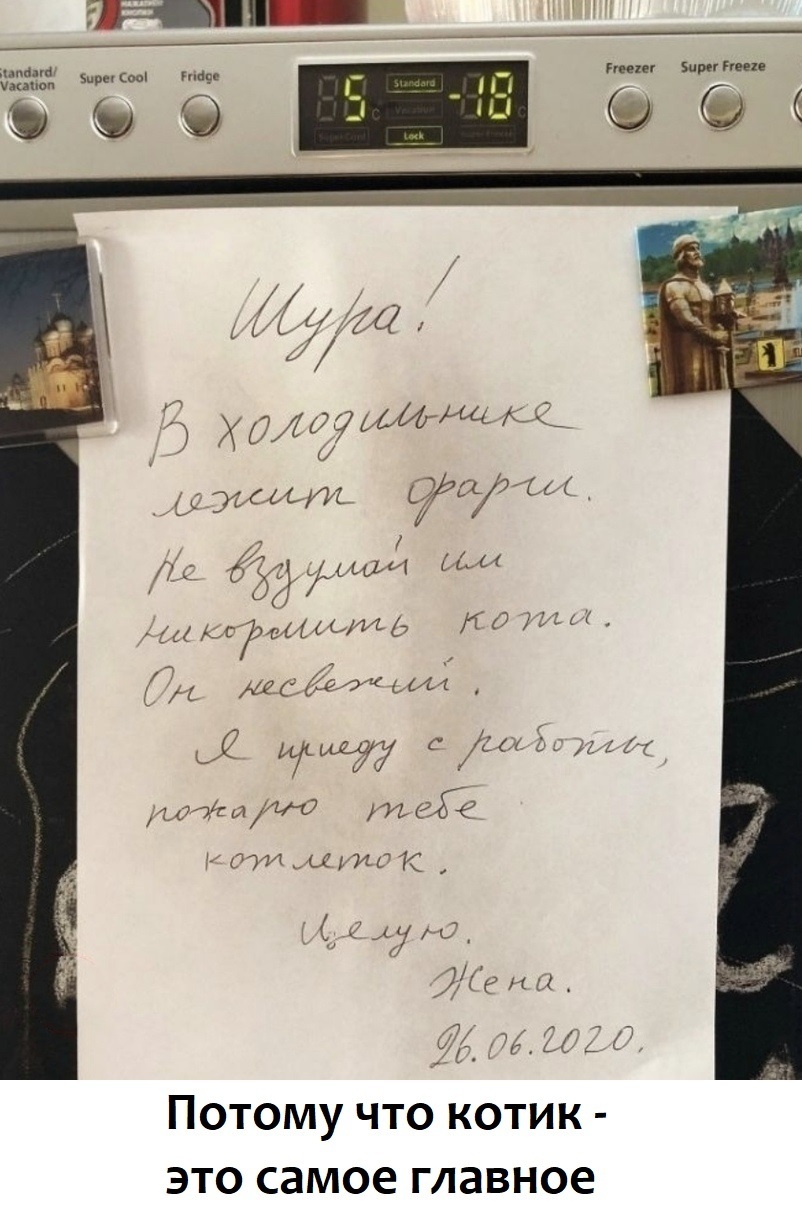 НАЖАТИЕМ
КНОПКИ
Standard/
Vacation
Super Cool
Fridge
5 c
Standard
Vacation
Lock
-18 c
Super Cool
Super Freeze
Freezer
Super Freeze
Шура!
В холодильнике
лежит фарш.
Не вздумай им
накормить кота.
Он несвежий.
Я приеду с работы,
пожарю тебе
котлеток.
Целую.
Жена.
26.06.2020.
Потому что котик -
это самое главное